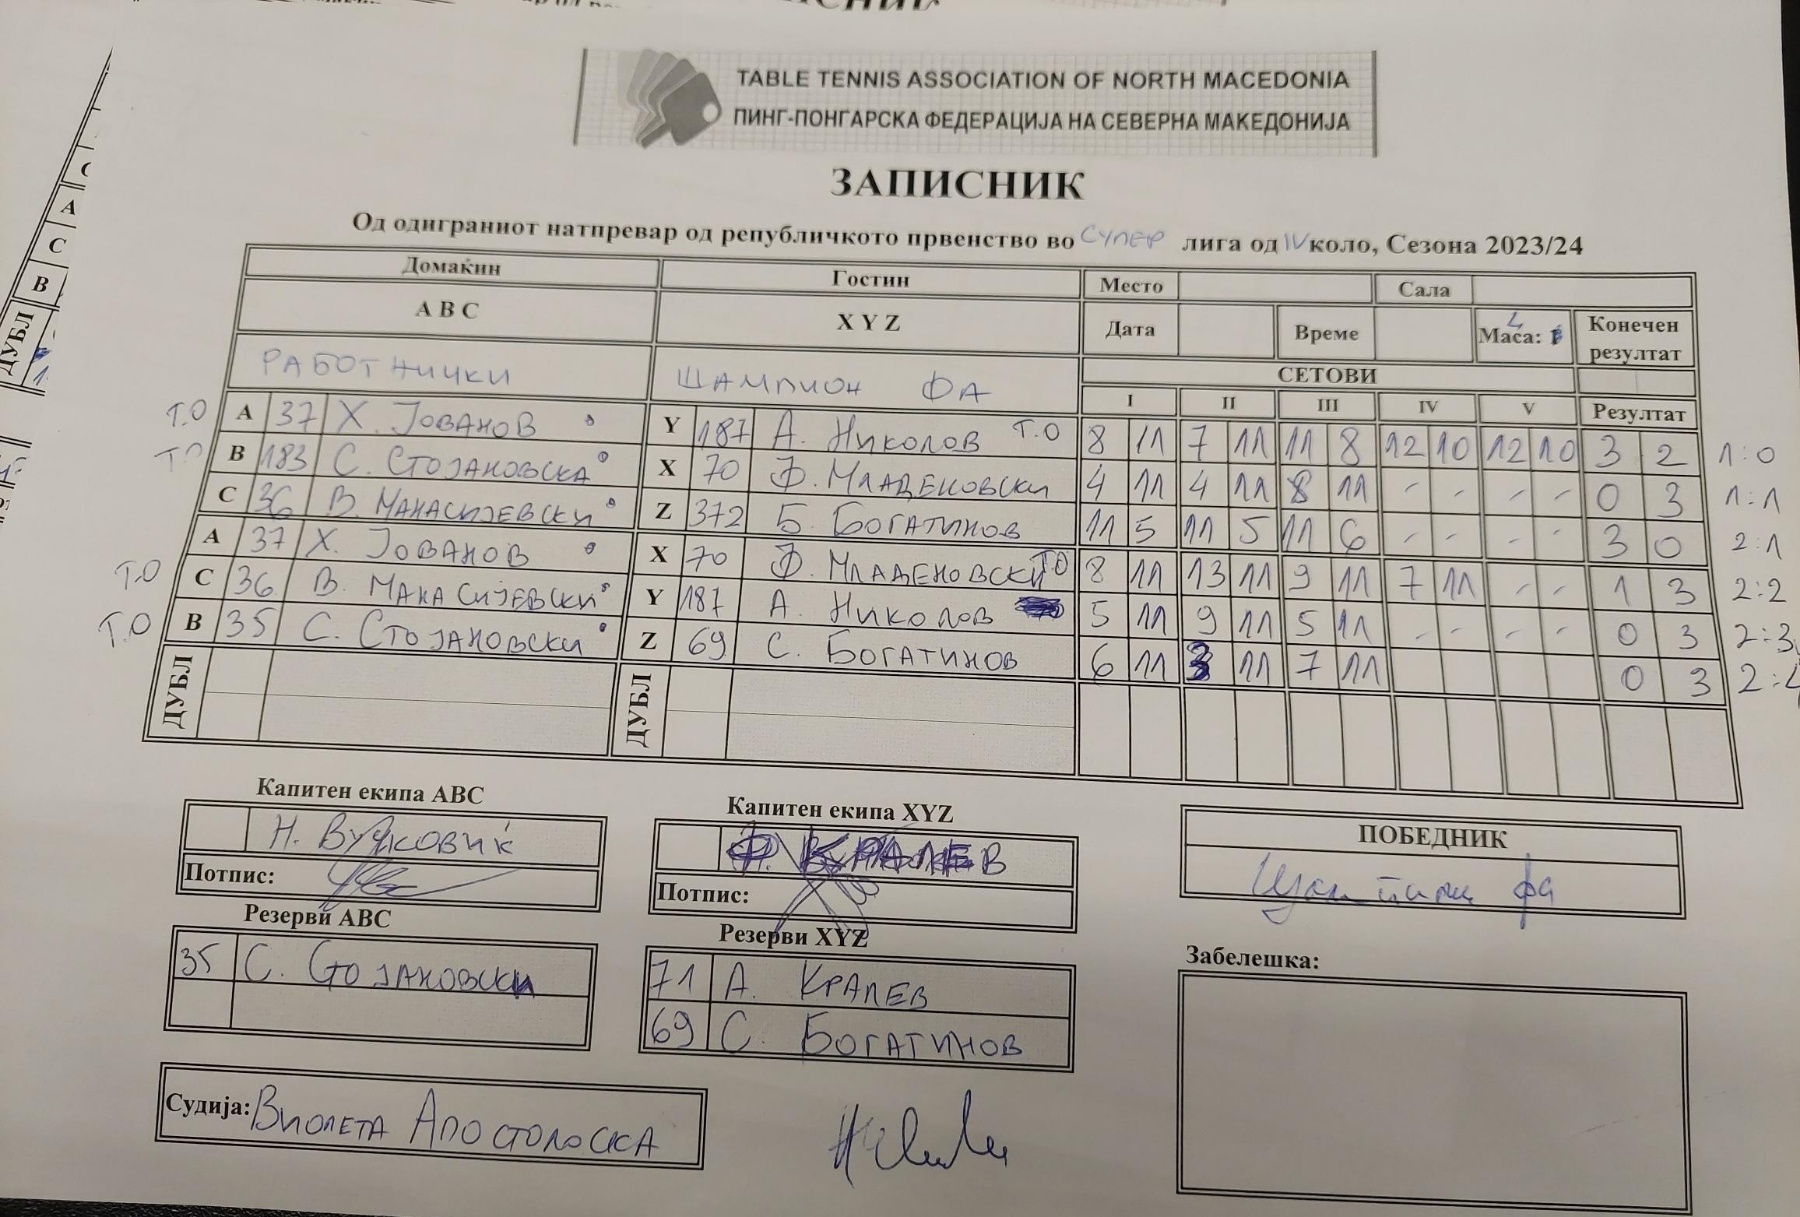 TABLE TENNIS ASSOCIATION OF NORTH MACEDONIA
ПИНГ-ПОНГАРСКА ФЕДЕРАЦИЈА НА СЕВЕРНА МАКЕДОНИЈА
ЗАПИСНИК
Од одиграниот натпревар од републичкото првенство во СУПЕР лига од IV коло, Сезона 2023/24
Домаќин Гостин Место Сала
A B C X Y Z Дата Време Маса: Конечен резултат
РАБОТНИЧКИ ШАМПИОН ФА СЕТОВИ
I II III IV V Резултат
Т.О A 37 Х. ЈОВАНОВ Y 187 А. НИКОЛОВ Т.О 8 11 7 11 11 8 12 10 12 10 3 2 1:0
Т.О B 183 С. СТОЈАНОВСКА X 70 Ф. МЛАДЕНОВСКИ 4 11 4 11 8 11 - - - - 0 3 1:1
C 36 В. МАНАСИЈЕВСКИ Z 372 Б. БОГАТИНОВ 11 5 11 5 11 6 - - - - 3 0 2:1
A 37 Х. ЈОВАНОВ X 70 Ф. МЛАДЕНОВСКИ Т.О 8 11 13 11 9 11 7 11 - - 1 3 2:2
Т.О C 36 В. МАНАСИЈЕВСКИ Y 187 А. НИКОЛОВ 5 11 9 11 5 11 - - - - 0 3 2:3
Т.О B 35 С. СТОЈАНОВСКИ Z 69 С. БОГАТИНОВ 6 11 3 11 7 11 0 3 2:4
ДУБЛ ДУБЛ
Капитен екипа ABC Капитен екипа XYZ
Н. ВУЧКОВИЌ ПОБЕДНИК
Потпис: Потпис: Шампион фа
Резерви ABC Резерви XYZ
35 С. СТОЈАНОВСКИ 71 А. КРАЛЕВ Забелешка:
69 С. БОГАТИНОВ
Судија: ВИОЛЕТА АПОСТОЛОСКА